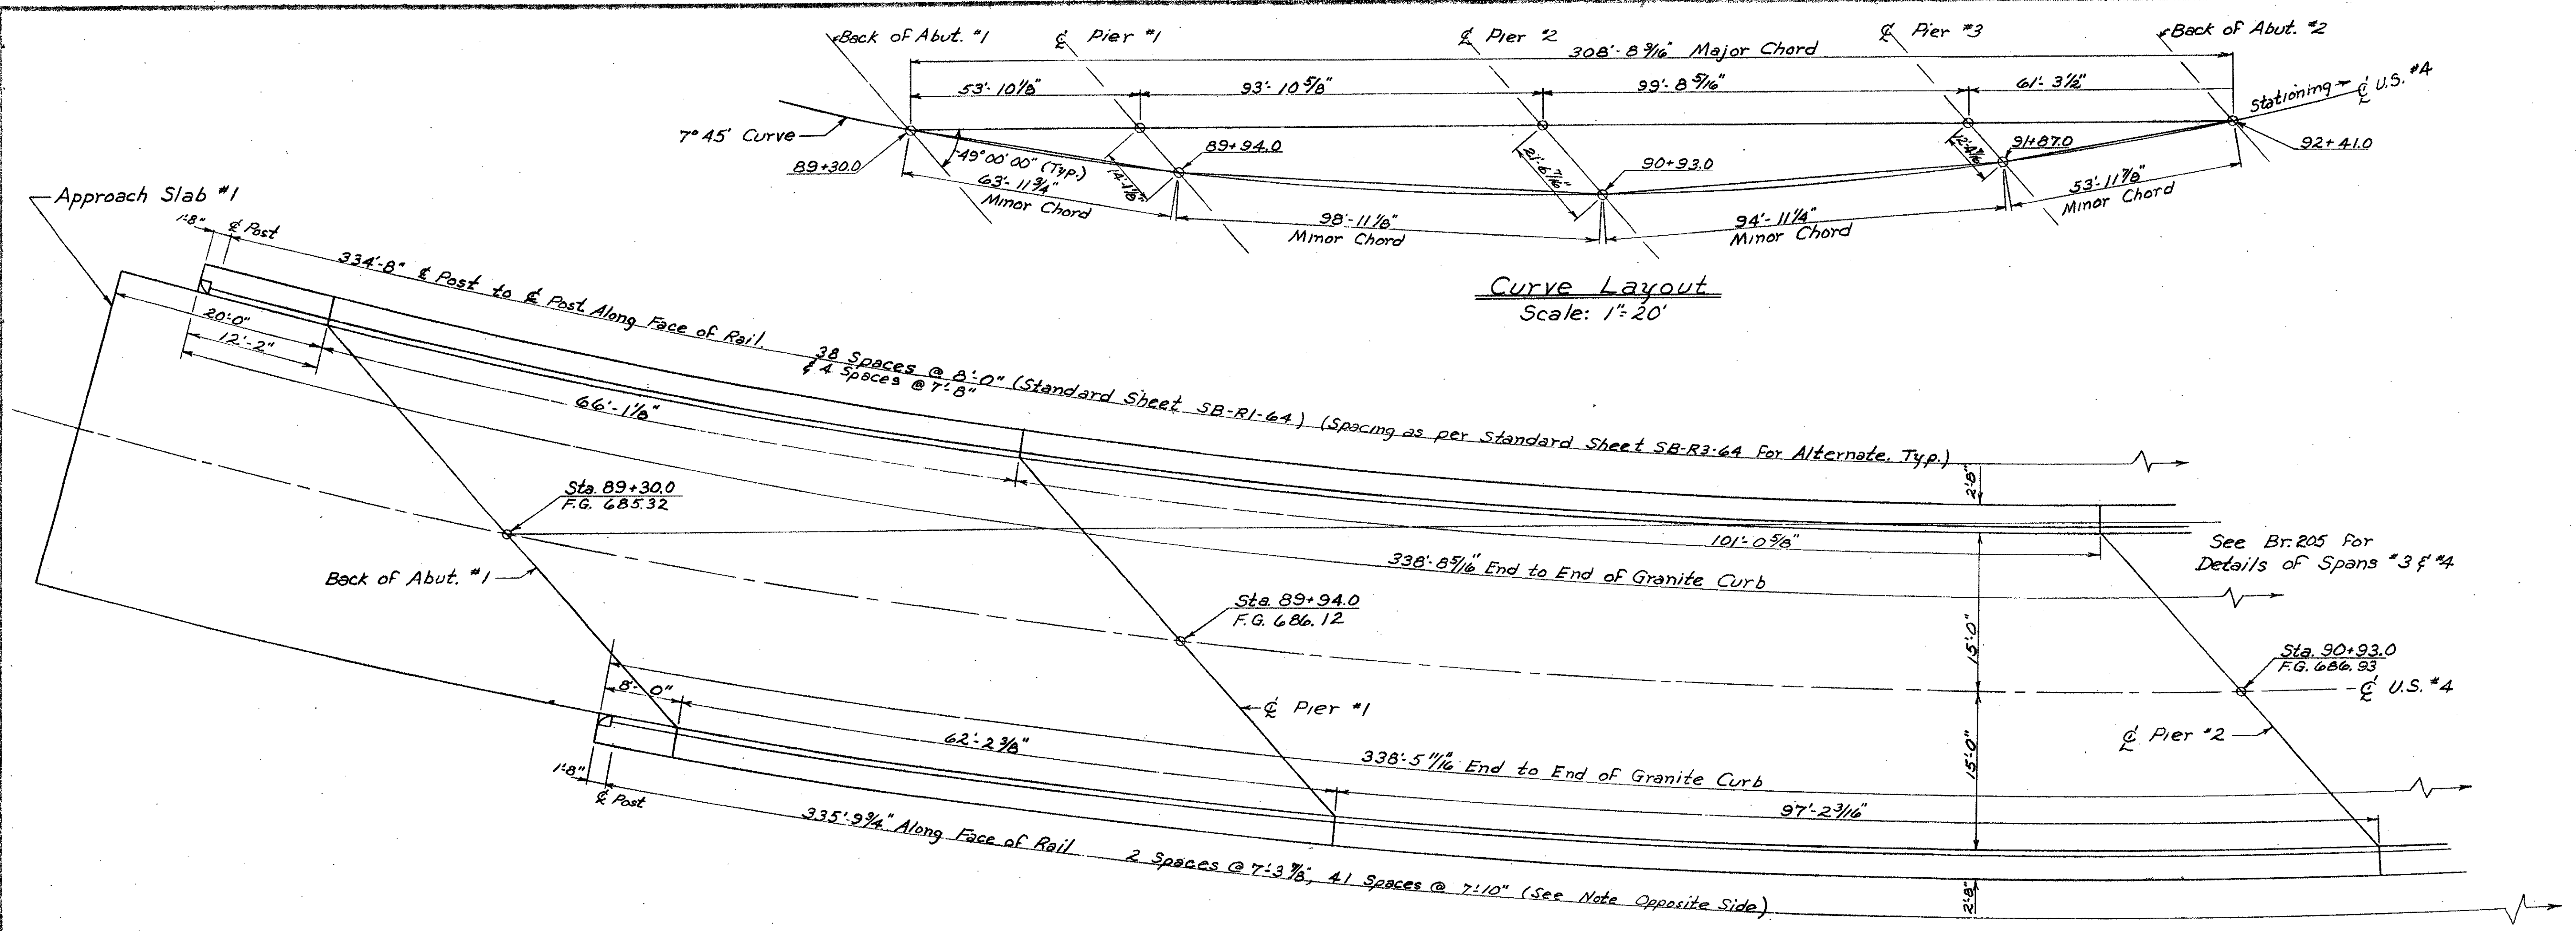 Back of Abut. #1
℄ Pier #1
℄ Pier #2
℄ Pier #3
Back of Abut. #2
308'-8 9/16" Major Chord
53'-10 1/8"
93'-10 5/8"
99'-8 5/16"
61'-3 1/2"
Stationing
℄ U.S. #4
7° 45' Curve
89+30.0
49°00'00" (Typ.)
14'-1 1/8"
89+94.0
21'-6 7/16"
90+93.0
91+87.0
92+41.0
63'-11 3/4"
Minor Chord
98'-11 1/8"
Minor Chord
94'-11 1/4"
Minor Chord
53'-11 7/8"
Minor Chord
Curve Layout
Scale: 1"=20'
Approach Slab #1
1'-8"
℄ Post
334'-8" ℄ Post to ℄ Post Along Face of Rail
38 Spaces @ 8'-0" (Standard Sheet SB-R1-64) (Spacing as per Standard Sheet SB-R3-64 For Alternate. Typ.)
& 4 Spaces @ 7'-8"
20'-0"
12'-2"
66'-1 1/8"
2'-8"
Sta. 89+30.0
F.G. 685.32
Back of Abut. #1
101'-0 5/8"
338'-8 5/16" End to End of Granite Curb
See Br. 205 For
Details of Spans #3 & #4
Sta. 89+94.0
F.G. 686.12
15'-0"
Sta. 90+93.0
F.G. 686.93
℄ U.S. #4
8'-0"
℄ Pier #1
62'-2 3/8"
338'-5 11/16" End to End of Granite Curb
15'-0"
℄ Pier #2
1'-8"
℄ Post
97'-2 3/16"
335'-9 3/4" Along Face of Rail
2 Spaces @ 7'-3 7/8", 41 Spaces @ 7'-10" (See Note Opposite Side)
2'-8"